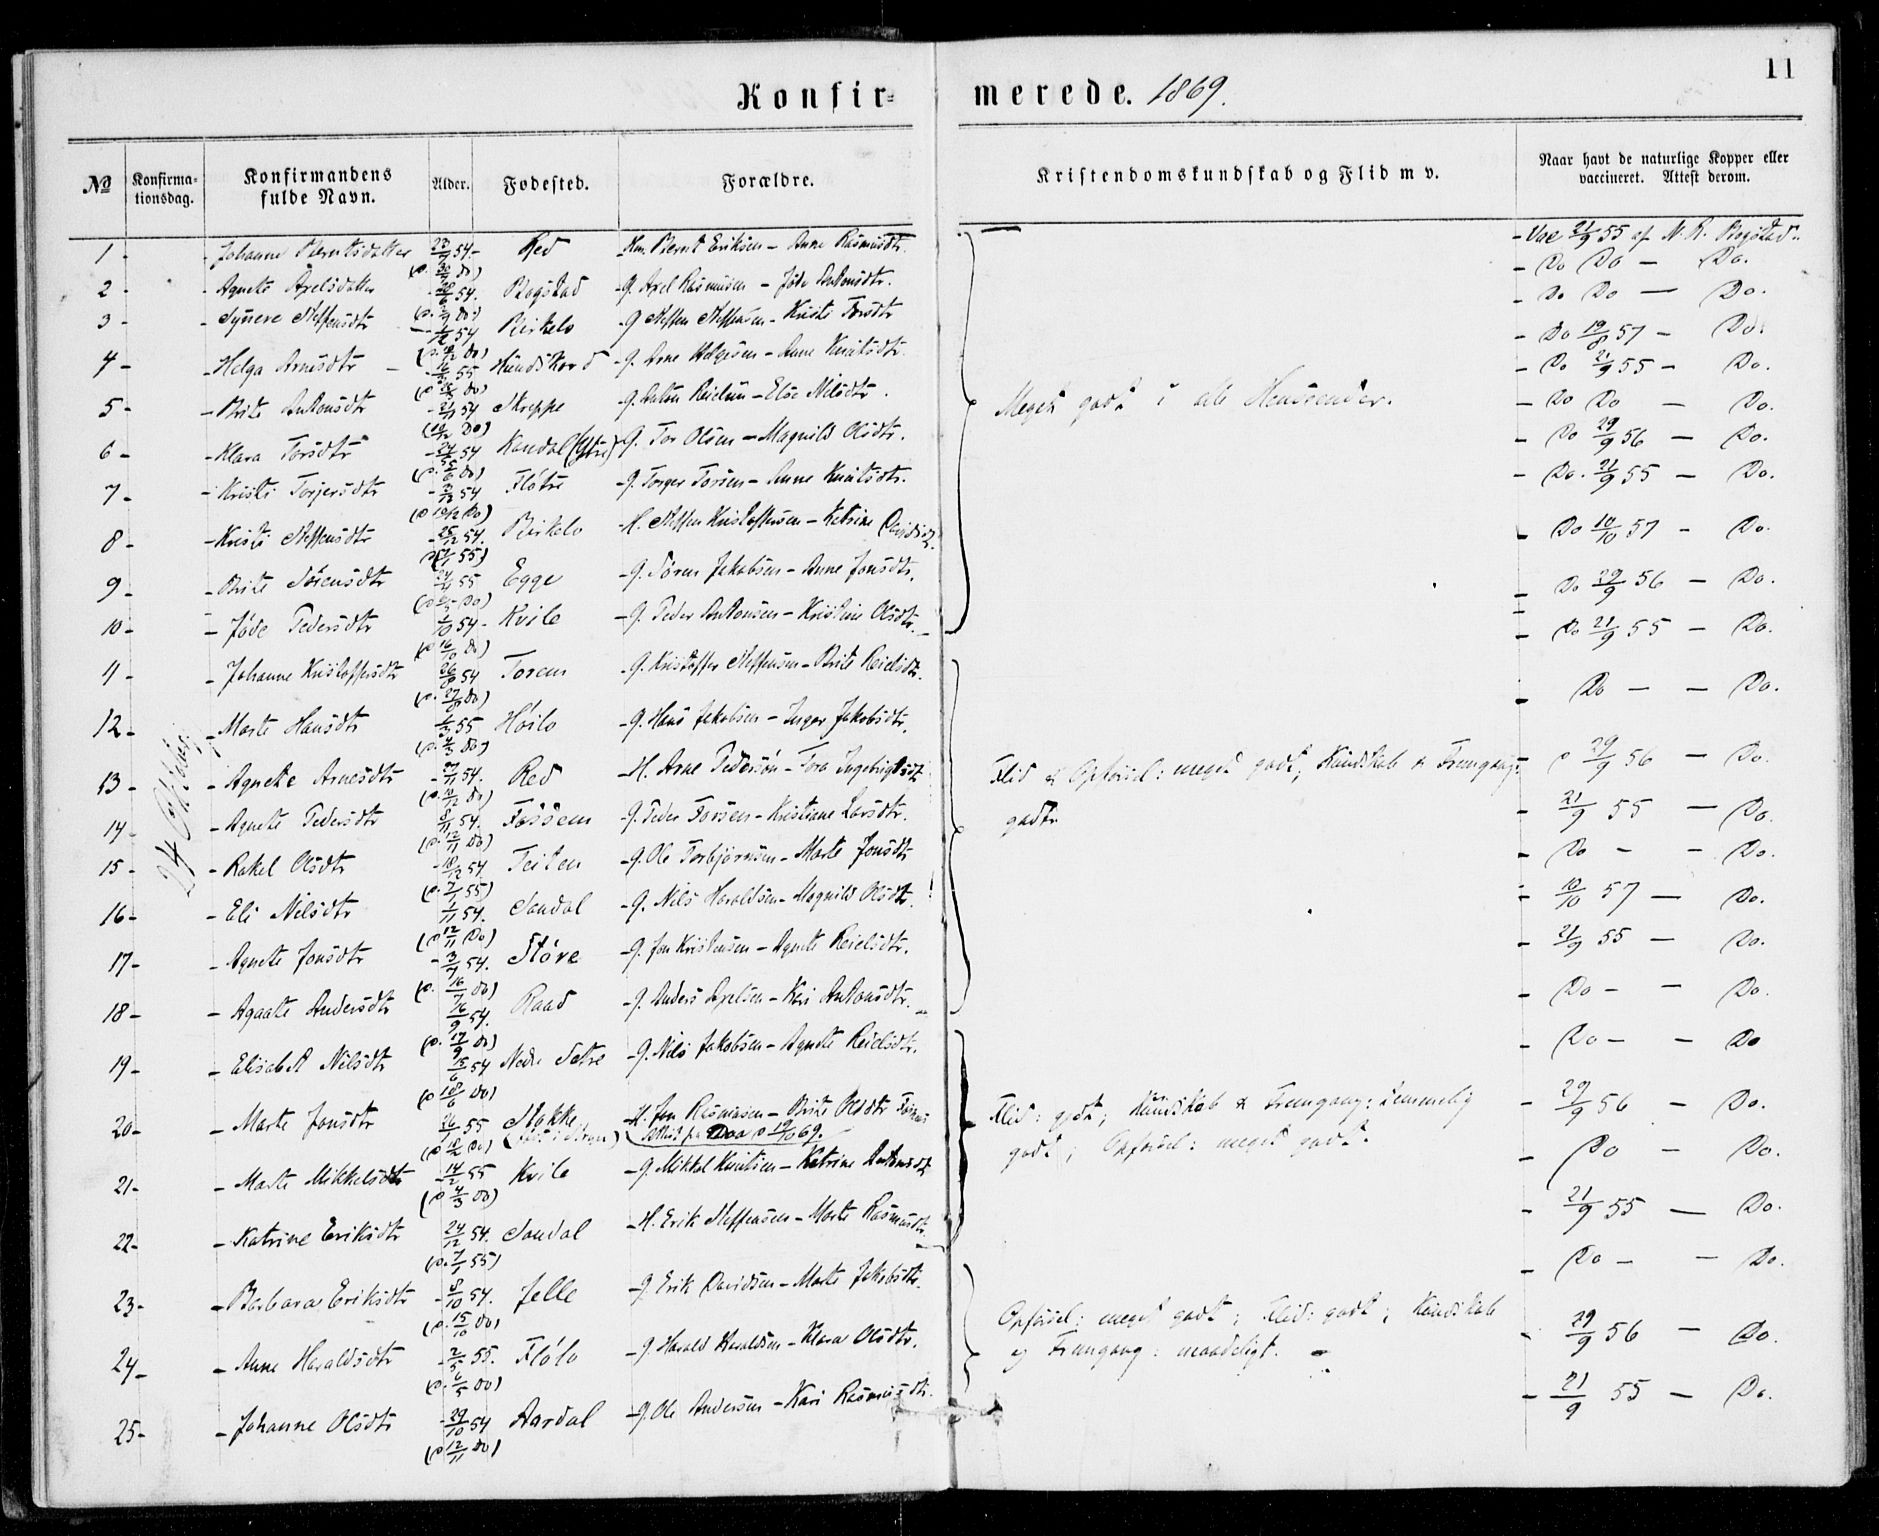 Konfirmerede. 1869. 11
№ Konfirmationsdag. Konfirmandens fulde Navn. Alder. Fødested. Forældre. Kristendomskundskab og Flid m v. Naar havt de naturlige Kopper eller vaccineret. Attest derom.
24 Oktober
1 - Johanne Berntsdatter 54 - Red Bernt Eriksen - Anne Rasmusdtr. - Vac 21/9 55 af N. R. Bogstad
2 - Agnete Axelsdatter 54. Bogstad - G. Axel Rasmusen - Jöde Antonsdtr. - Do Do - Do.
3 - Synneve Steffensdtr 54 Birkelo - G Steffen Steffensen - Kristi Torsdtr - Do Do - Do.
4 - Helga Arnesdtr - 55 - G. Arne Helgesen - Anne Knutsdtr. - Do 19/8 57 - Do.
5 - Brite Antonsdtr - 21/11 54 Skreppe - G. Anton Reielsen - Else Nilsdtr. - Do 21/9 55 - Do.
6 - Klara Torsdtr 54 Kandal (Ytre) - G. Tor Olsen - Magnild Olsdtr. - Do Do - Do.
7 - Kristi Torjersdtr 54 Flötre - G. Torger Torsen - Anne Knutsdtr. - Do 29/9 56 - Do.
8 - Kristi Steffensdtr - 25/12 54. Birkelo - H. Steffen Kristoffersen - Katrine Davidsdt. - Do. 21/9 55 - Do.
Meget godt i alle Henseender.
9 - Brite Sörensdtr 55 Egge - G. Sören Jakobsen - Anne Jonsdtr. - Do 10/10 57 - Do.
10 - Jöde Pedersdtr 1/10 54 - Kvile - G. Peder Antonsen - Kristine Olsdtr. - Do 29/9 56 - Do.
11 - Johanne Kristoffersdtr 26/8 54 Toreim - G. Kristoffer Steffensen - Brite Reielsdtr. - Do 21/9 55 - Do.
12 - Marte Hansdtr 55 Höilo - G. Hans Jakobsen - Inger Jakobsdtr. Do - - Do.
13 - Agnete Arnesdtr 54. Red - H. Arne Pedersön - Tora Ingebrigtsdt - 29/9 56 - Do.
Flid & Opförsel: meget godt; Kundskab & Fremgang: godt.
14 - Agnete Pedersdtr 8/11 54. Fossem - G. Peder Torsen - Kristiane Larsdtr. - 21/9 55 - Do.
15 - Rakel Olsdtr - 18/12 54. Teiten - G. Ole Torbjörnsen - Marte Jonsdtr - Do - - Do.
16 - Eli Nilsdtr 1/11 54. Sandal - G. Nils Haraldsen - Magnild Olsdtr. - 10/10 57 - Do.
17 - Agnete Jonsdtr - 3/7 54. Støre - G. Jon Kristensen - Agnete Reielsdtr. - 21/9 55 - Do.
18 - Agaate Andersdtr 16/9 54. Raad - G. Anders Axelsen - Kari Antonsdtr. - Do - - Do.
19 - Elisabet Nilsdtr 54 Nedre Sætre - G. Nils Jakobsen - Agnete Reielsdtr. - Do - - Do
20 - Marte Jonsdtr 26/1 55 Stokke - H. Jon Rasmusen - Brite Olsdtr - 29/9 56 - Do.
Flid: godt; Kundskab & Fremgang: temmelig godt; Opförsel: meget godt.
21 - Marte Mikkelsdtr - 14/2 55 Kvile - G. Mikkel Knutsen - Katrine Antonsdt - Do - Do.
22 - Katrine Eriksdtr 24/12 54. Sandal - H. Erik Steffensen - Marte Rasmusdtr. - 21/9 55 - Do.
23 - Barbara Eriksdtr - 8/10 54. Jelle - G. Erik Davidsen - Marte Jakobsdtr. - Do - - Do.
24 - Anne Haraldsdtr - 2/5 55. Flölo - G. Harald Haraldsen - Klara Olsdtr. - 29/9 56 - Do.
Opförsel: meget godt; Flid: godt; Kundskab og Fremgang: maadeligt.
25 - Johanne Olsdtr - 29/10 54 Aardal - G. Ole Andersen - Kari Rasmusdtr. - 21/9 55 - Do.